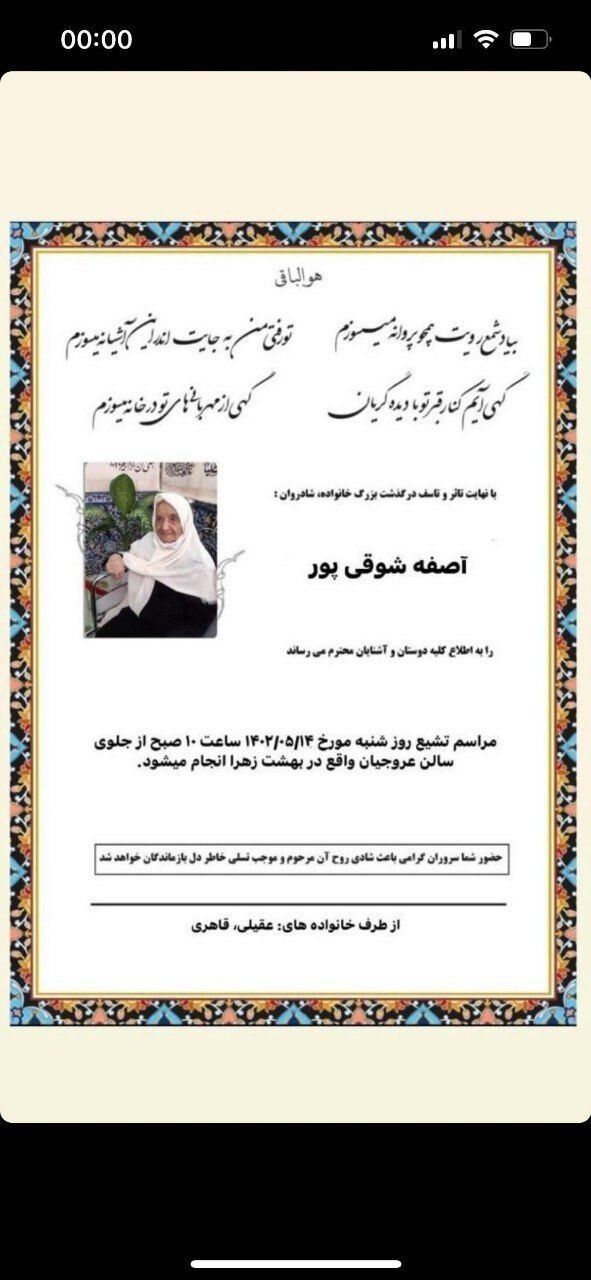 00:00
هوالباقی
بیاد شمع رویت همچو پروانه میسوزم
تو رفتی من به جایت اندر این آشیانه میسوزم
گهی آیم کنار قبر تو با دیده گریان
گهی از مهربانی های تو در خانه میسوزم
با نهایت تاثر و تاسف درگذشت بزرگ خانواده، شادروان :
آصفه شوقی پور
را به اطلاع کلیه دوستان و آشنایان محترم می رساند
مراسم تشیع روز شنبه مورخ ۱۴۰۲/۰۵/۱۴ ساعت ۱۰ صبح از جلوی
سالن عروجیان واقع در بهشت زهرا انجام میشود.
حضور شما سروران گرامی باعث شادی روح آن مرحوم و موجب تسلی خاطر دل بازماندگان خواهد شد
از طرف خانواده های: عقیلی، قاهری